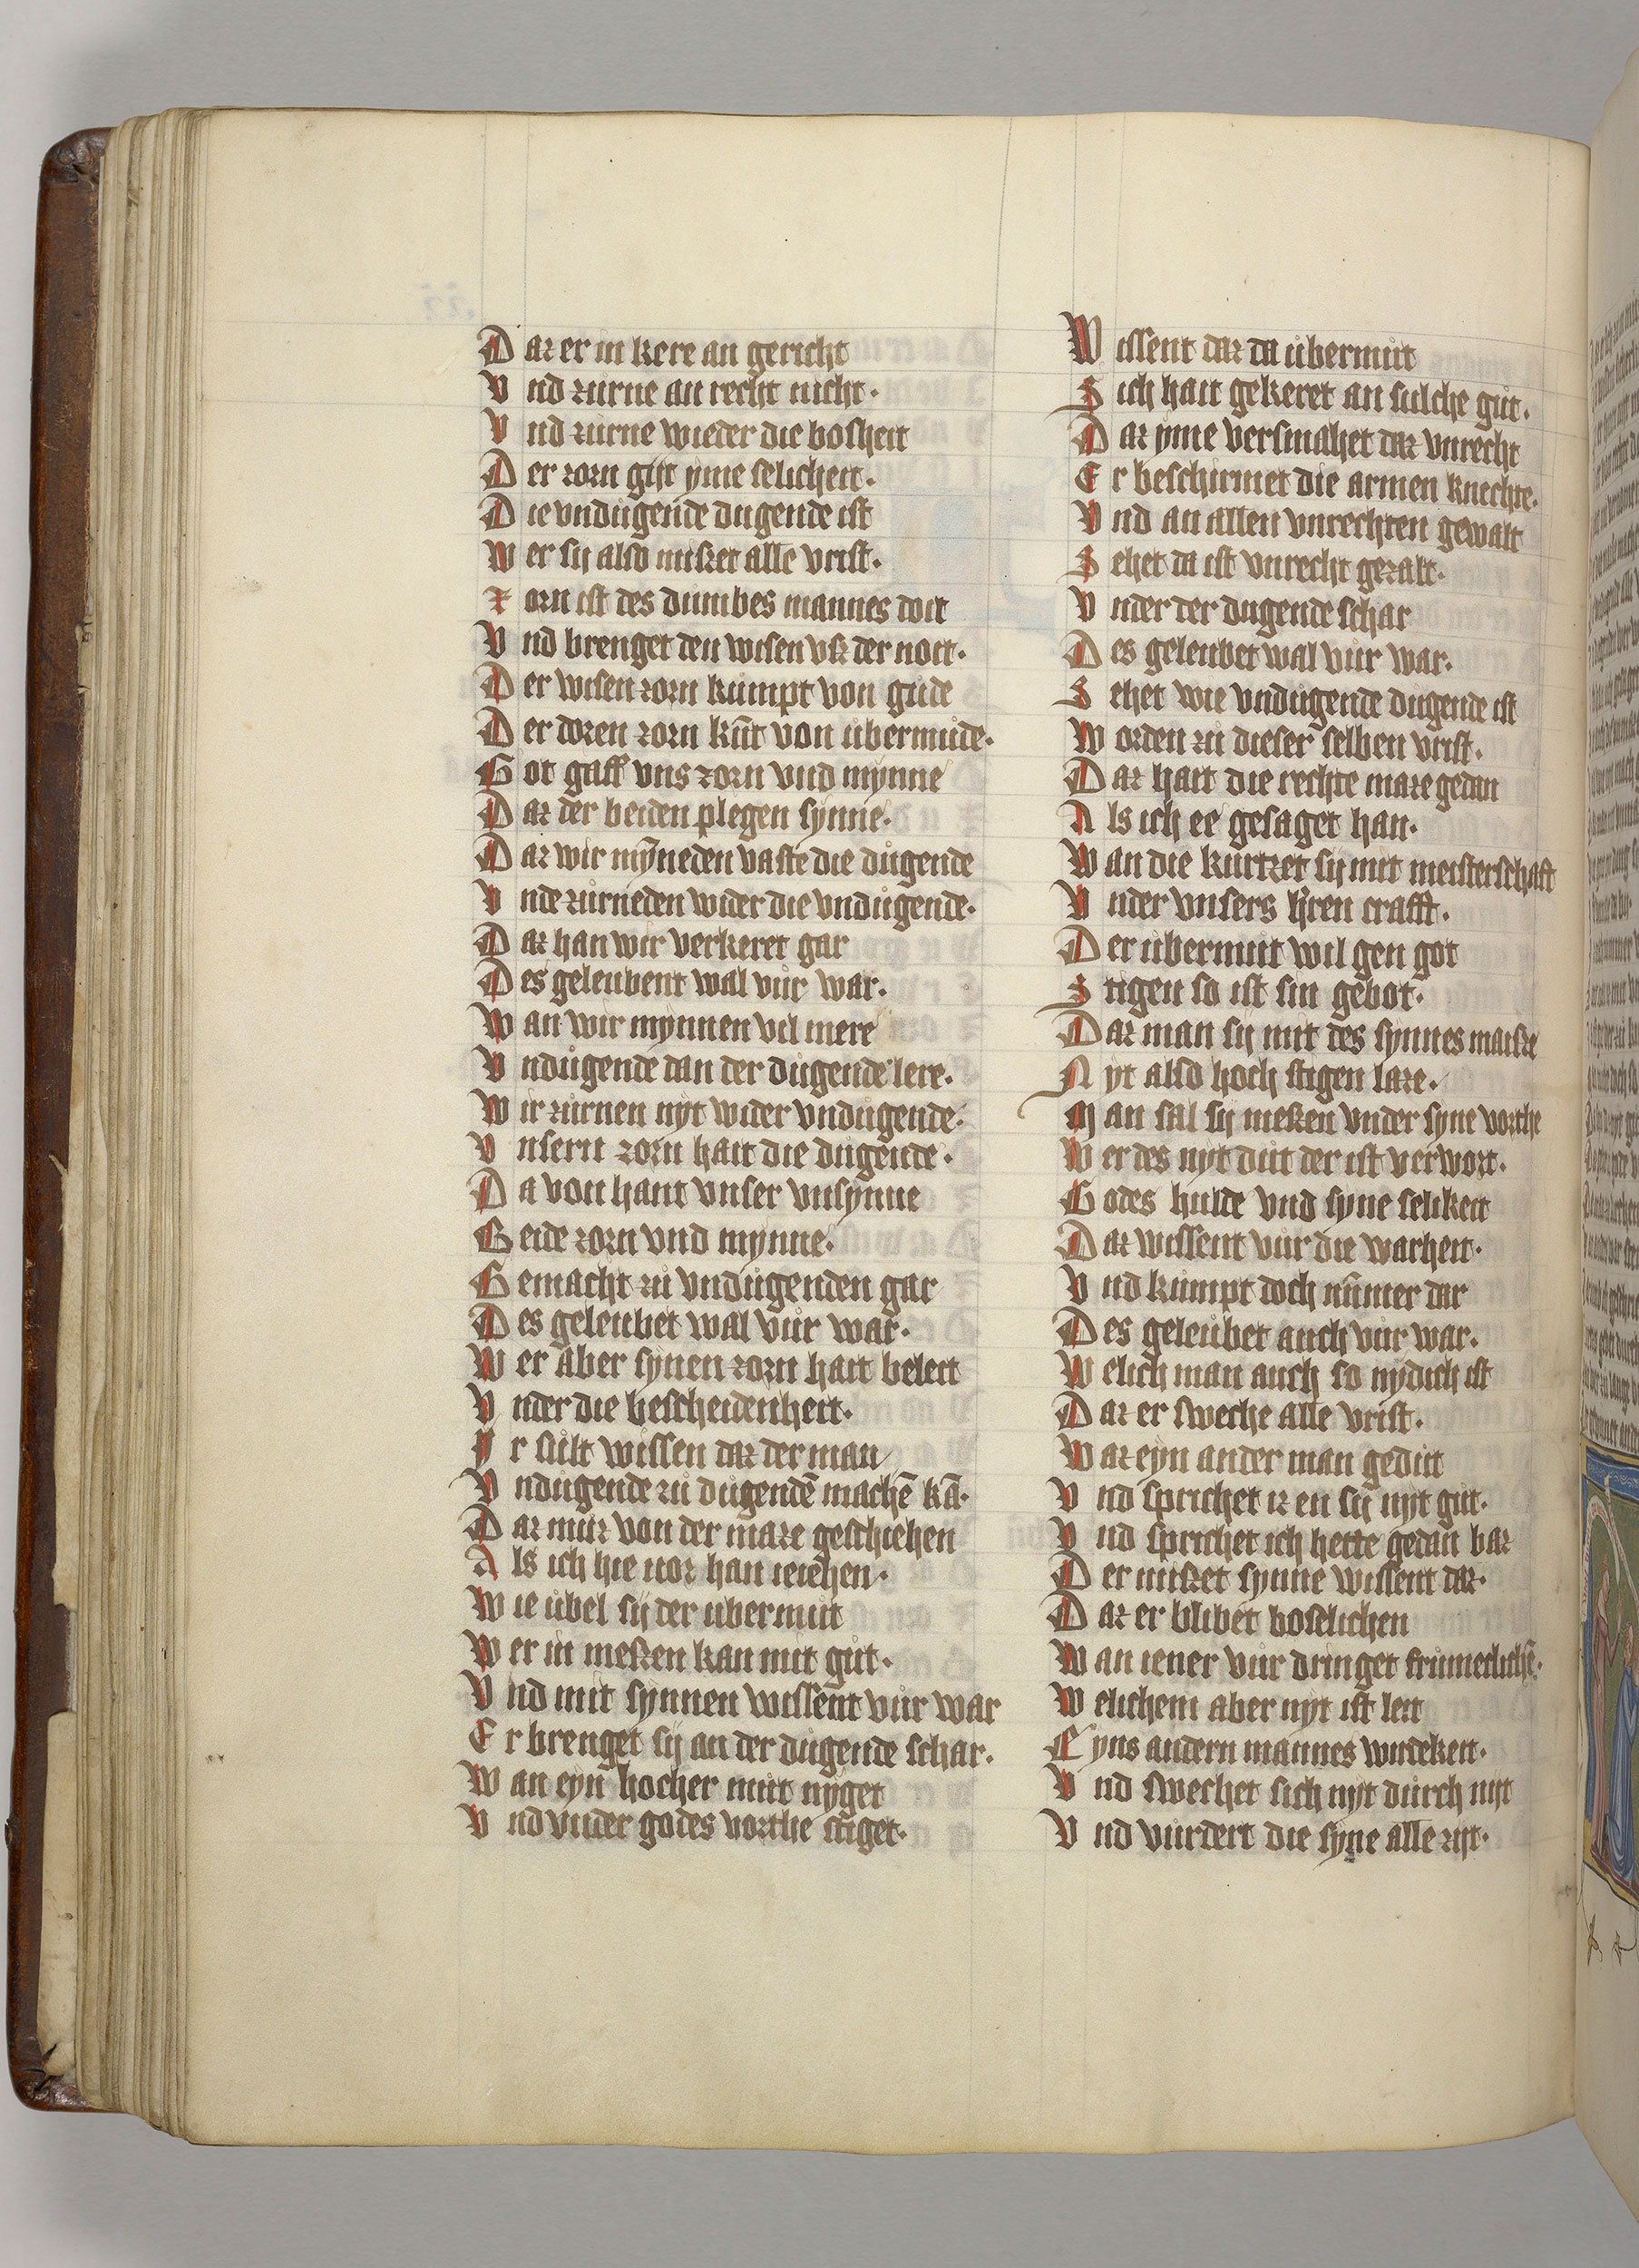 Daz er in kere an gericht
Vnd zurne an recht nicht·
Vnd zurne wieder die bosheit
Der zorn gijt yme selicheit·
Die vndugende dugende ist
Wer sij also nutzet alle vrist·
Zorn ist des dumbes mannes doit
Vnd brenget den wisen vsz der noit·
Der wisen zorn kumpt von gude
Der doren zorn kūt von ubermude·
Got gaff vns zorn vnd mynne
Daz der beiden plegen synne·
Daz wir mȳneden vaste die dugende
Vnde zurneden wider die vndugende·
Daz han wir verkeret gar
Des geleubent wal vur war·
Wan wir mynnen vil mere
Vndugende dan der dugende lere·
Wir zurnen nyt wider vndugende·
Vnsern zorn hait die dugende·
Da von hant vnser vnsynne
Beide zorn vnd mynne·
Gemacht zu vndugenden gar
Des geleubet wal vur war·
Wer aber synen zorn hait beleit
Vnder die bescheidenheit·
Ir sult wissen daz der man
Vndugende zu dugendē machē kā·
Daz muz von der maze geschiehen
Als ich hie uor han ieiehen·
Wie ubel sij der ubermut
Wer in meszen kan mit gut·
Vnd mit synnen wissent vur war
Er brenget sij an der dugende schar·
Wan eyn hocher mut nyget
Vnd vnder godes vorthe stiget·
Wissent daz da ubermut
Sich hait gekeret an sulche gut·
Daz yme versmahet daz vnrecht
Er beschirmet die armen knechte·
Vnd an allen vnrechten gewalt
Sehet da ist vnrecht gezalt·
Vnder der dugende schar
Des geleubet wal vur war·
Sehet wie vndugende dugende ist
Worden zu dieser selben vrist·
Daz hait die rechte maze gedan
Als ich ee gesaget han·
Wan die kurtzet sij mit meisterschafft
Vnder vnsers h̄ren crafft·
Der ubermut wil gen got
Stigen so ist sin gebot·
Daz man sij mit des synnes maisze
Nyt also hoch stigen laze·
Man sal sij meszen vnder syne vorthe
Wer des nyt dut der ist verwozt·
Godes hulde vnd syne selikeit
Daz wissent vur die warheit·
Vnd kumpt doch nūmer dar
Des geleubet auch vur war·
Welich man auch so nydich ist
Daz er sweche alle vrist·
Waz eyn ander man gedut
Vnd sprichet iz en sij nyt gut·
Vnd sprichet ich hette gedan baz
Der nutzet synne wissent daz·
Daz er blibet boslichen
Wan iener vur dringet frumerlichē·
Welichem aber nyt ist leit
Eyns andern mannes wirdekeit·
Vnd swechet sich nyt durch nijt
Vnd vurdert die syne alle zijt·